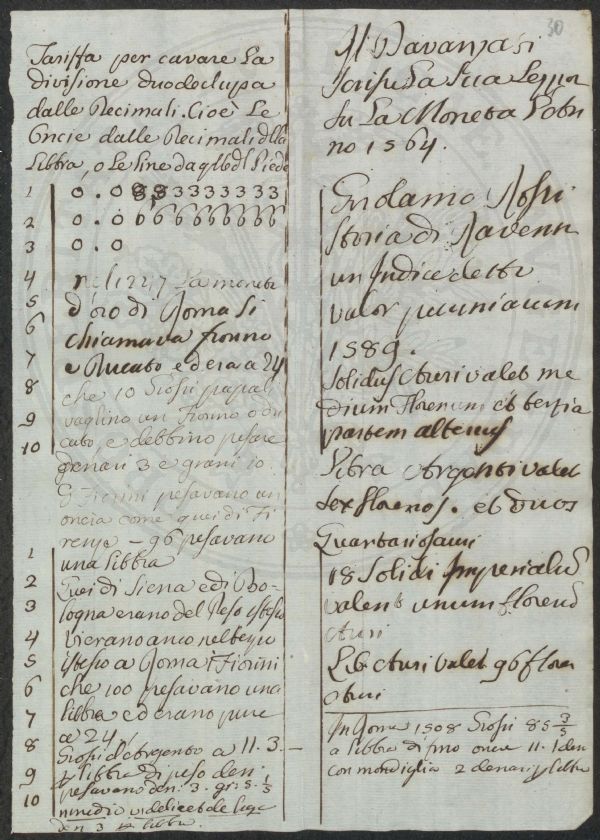 Tariffa per cavare La
divisione duodecupa
dalle Decimali. Cioè Le
Oncie dalle Decimali dlla
Libbra, o Le linee da qlle dl Piede
1 0.08333333333
2 0.0666666666
3 0.0
4 nel 1227 La moneta
5 d'oro di Roma si
6 chiamava fiorino
7 e Ducato ed era a 24
8 che 10 Grossi papali
9 vaglino un fiorino o du
10 cato, e debbino pesare
denari 3 e grani 10.
G fiorini pesavano un
oncia come quei di Fi
renze – 96 pesavano
1 una Libbra
2 Quei di Siena e di Bo-
3 logna erano del Peso istesso
4 Vi erano anco nel tempo
5 istesso a Roma Fiorini
6 che 100 pesavano una
7 Libbra ed erano pure
a 24.
8 Grossi d'Argento a 11.3. –
9 p Libbra di peso den.
10 pesavano den. 3. gr. 5. 1/5
videlicet de
den 3 Libbra.
30
Il Davanzati
scrisse La sua Lezzion
su La Moneta L'otn
no 1564.
Girolamo Rossi
storia di Ravenn
un Indice detto
valor pecuniarum
1589.
Solidus Auri valet me
dium Florenum, et tertia
partem alterius
Libra Argenti valet
sex florenos. et duos
Quartarios auri
18 Solidi Imperialiu
valent unum florenu
Auri
Lib Auri valet 96 floren
Auri
In Roma 1508 Grossi 85 3/5
a libbra di fino oncie 11. 1 den
con mondiglia 2 denari p libbra